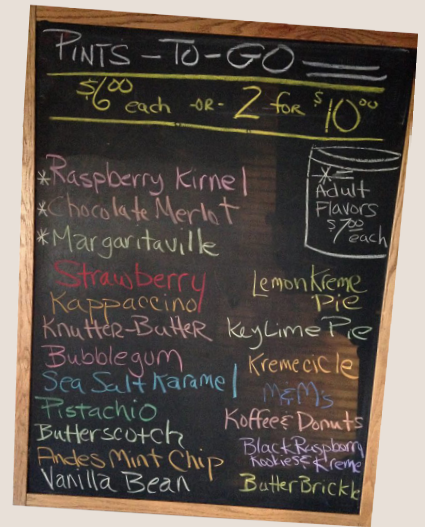 PINTS-TO-GO
$6.00 each -OR- 2 for $10.00
*Raspberry Kirnel
*Chocolate Merlot
*Margaritaville
*=
Adult
Flavors
$7.00
each
Strawberry
Kappaccino
Knutter-Butter
Bubblegum
Sea Salt Karamel
Pistachio
Butterscotch
Andes Mint Chip
Vanilla Bean
Lemon Kreme
Pie
Key Lime Pie
Kremecicle
M&M's
Koffee & Donuts
Black Raspberry
Kookies & Kreme
Butter Brickle